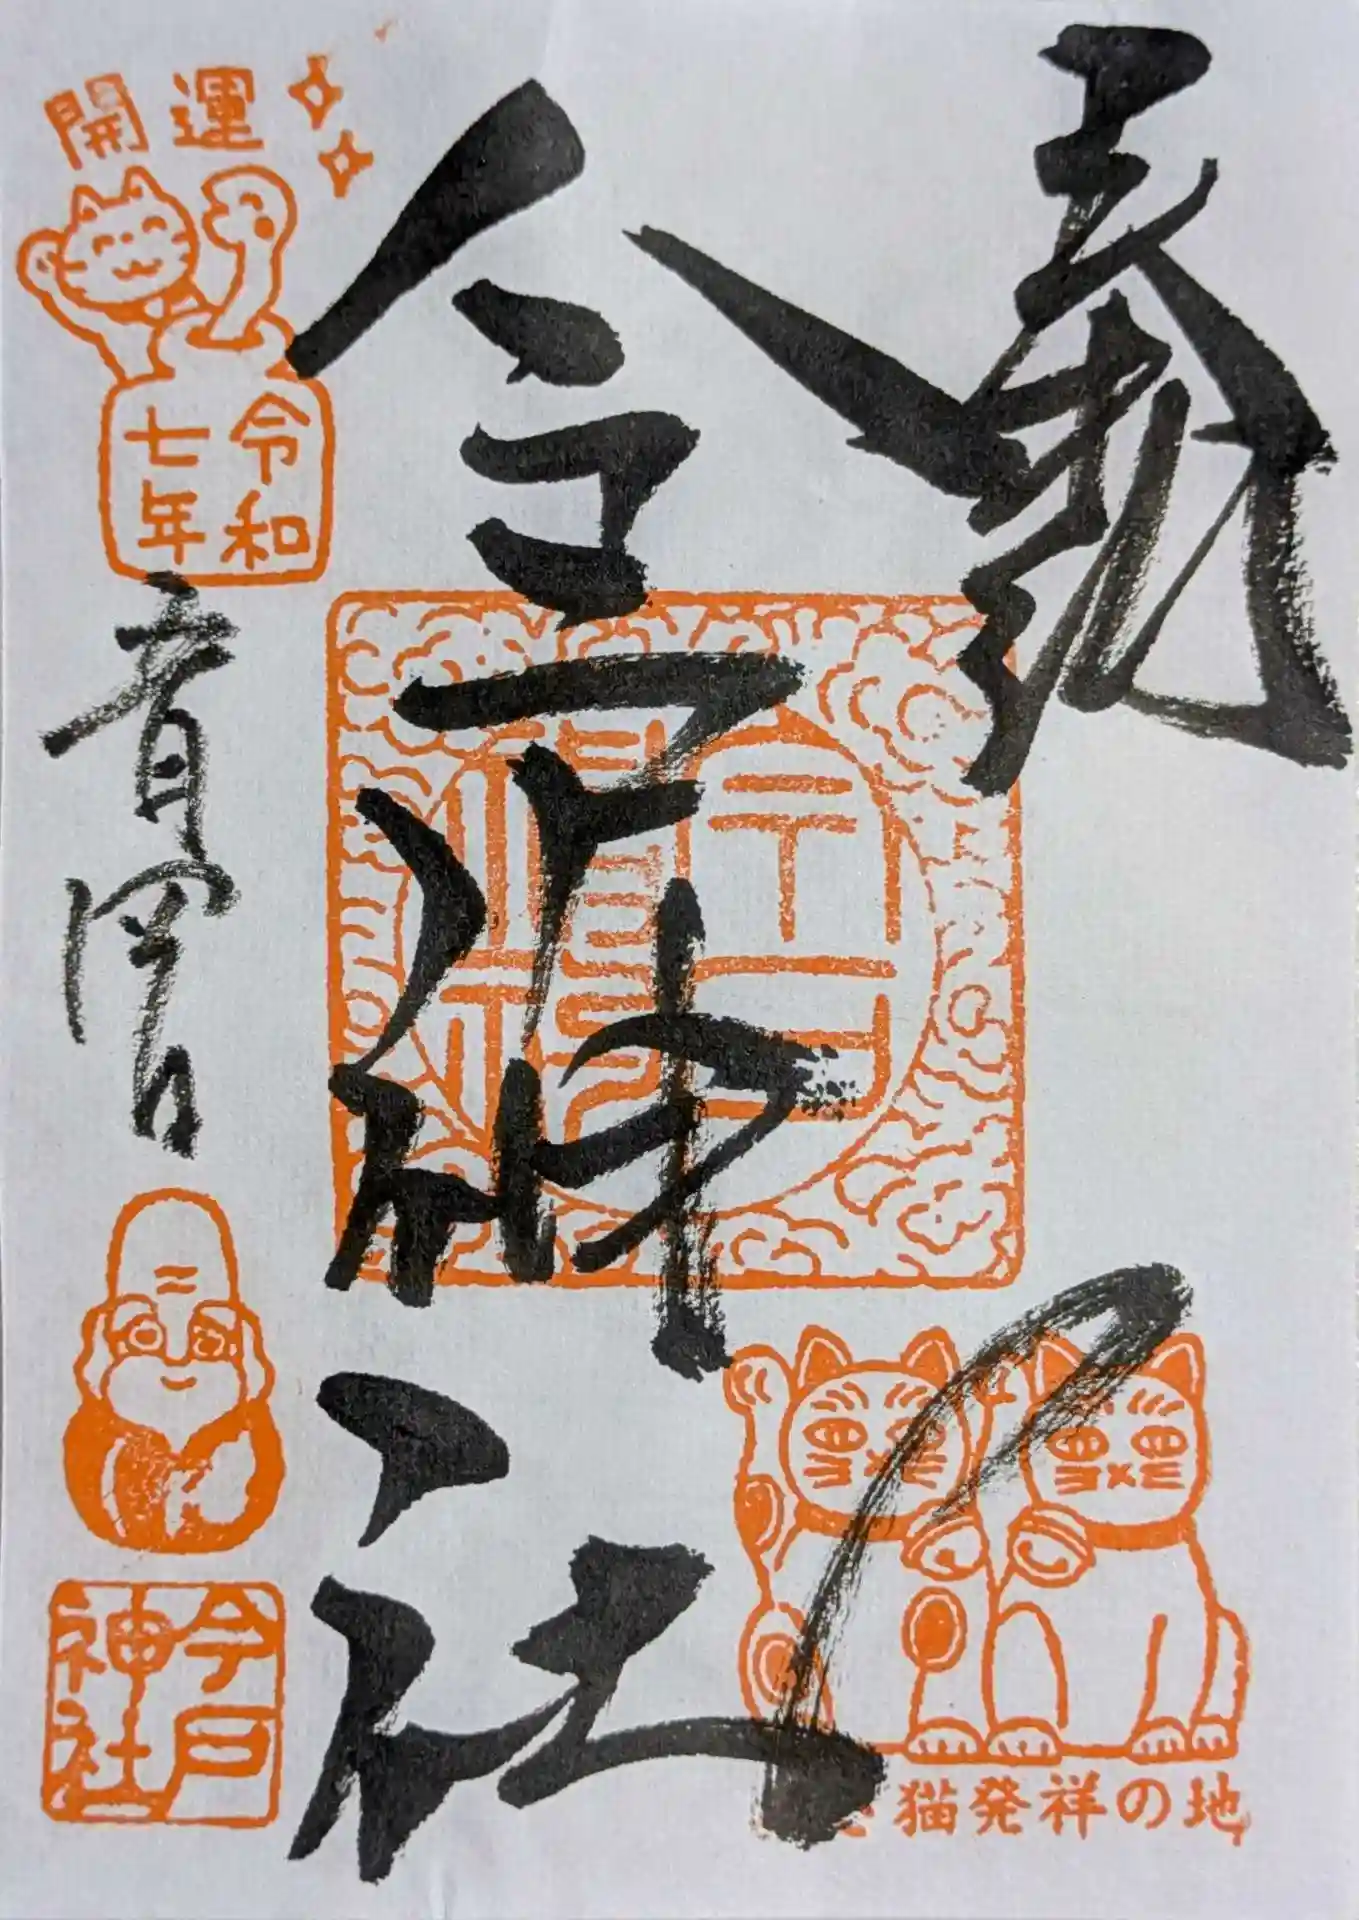 奉拝
今戸神社
開運
令和
七年
六月四日
今戸
神社
猫発祥の地